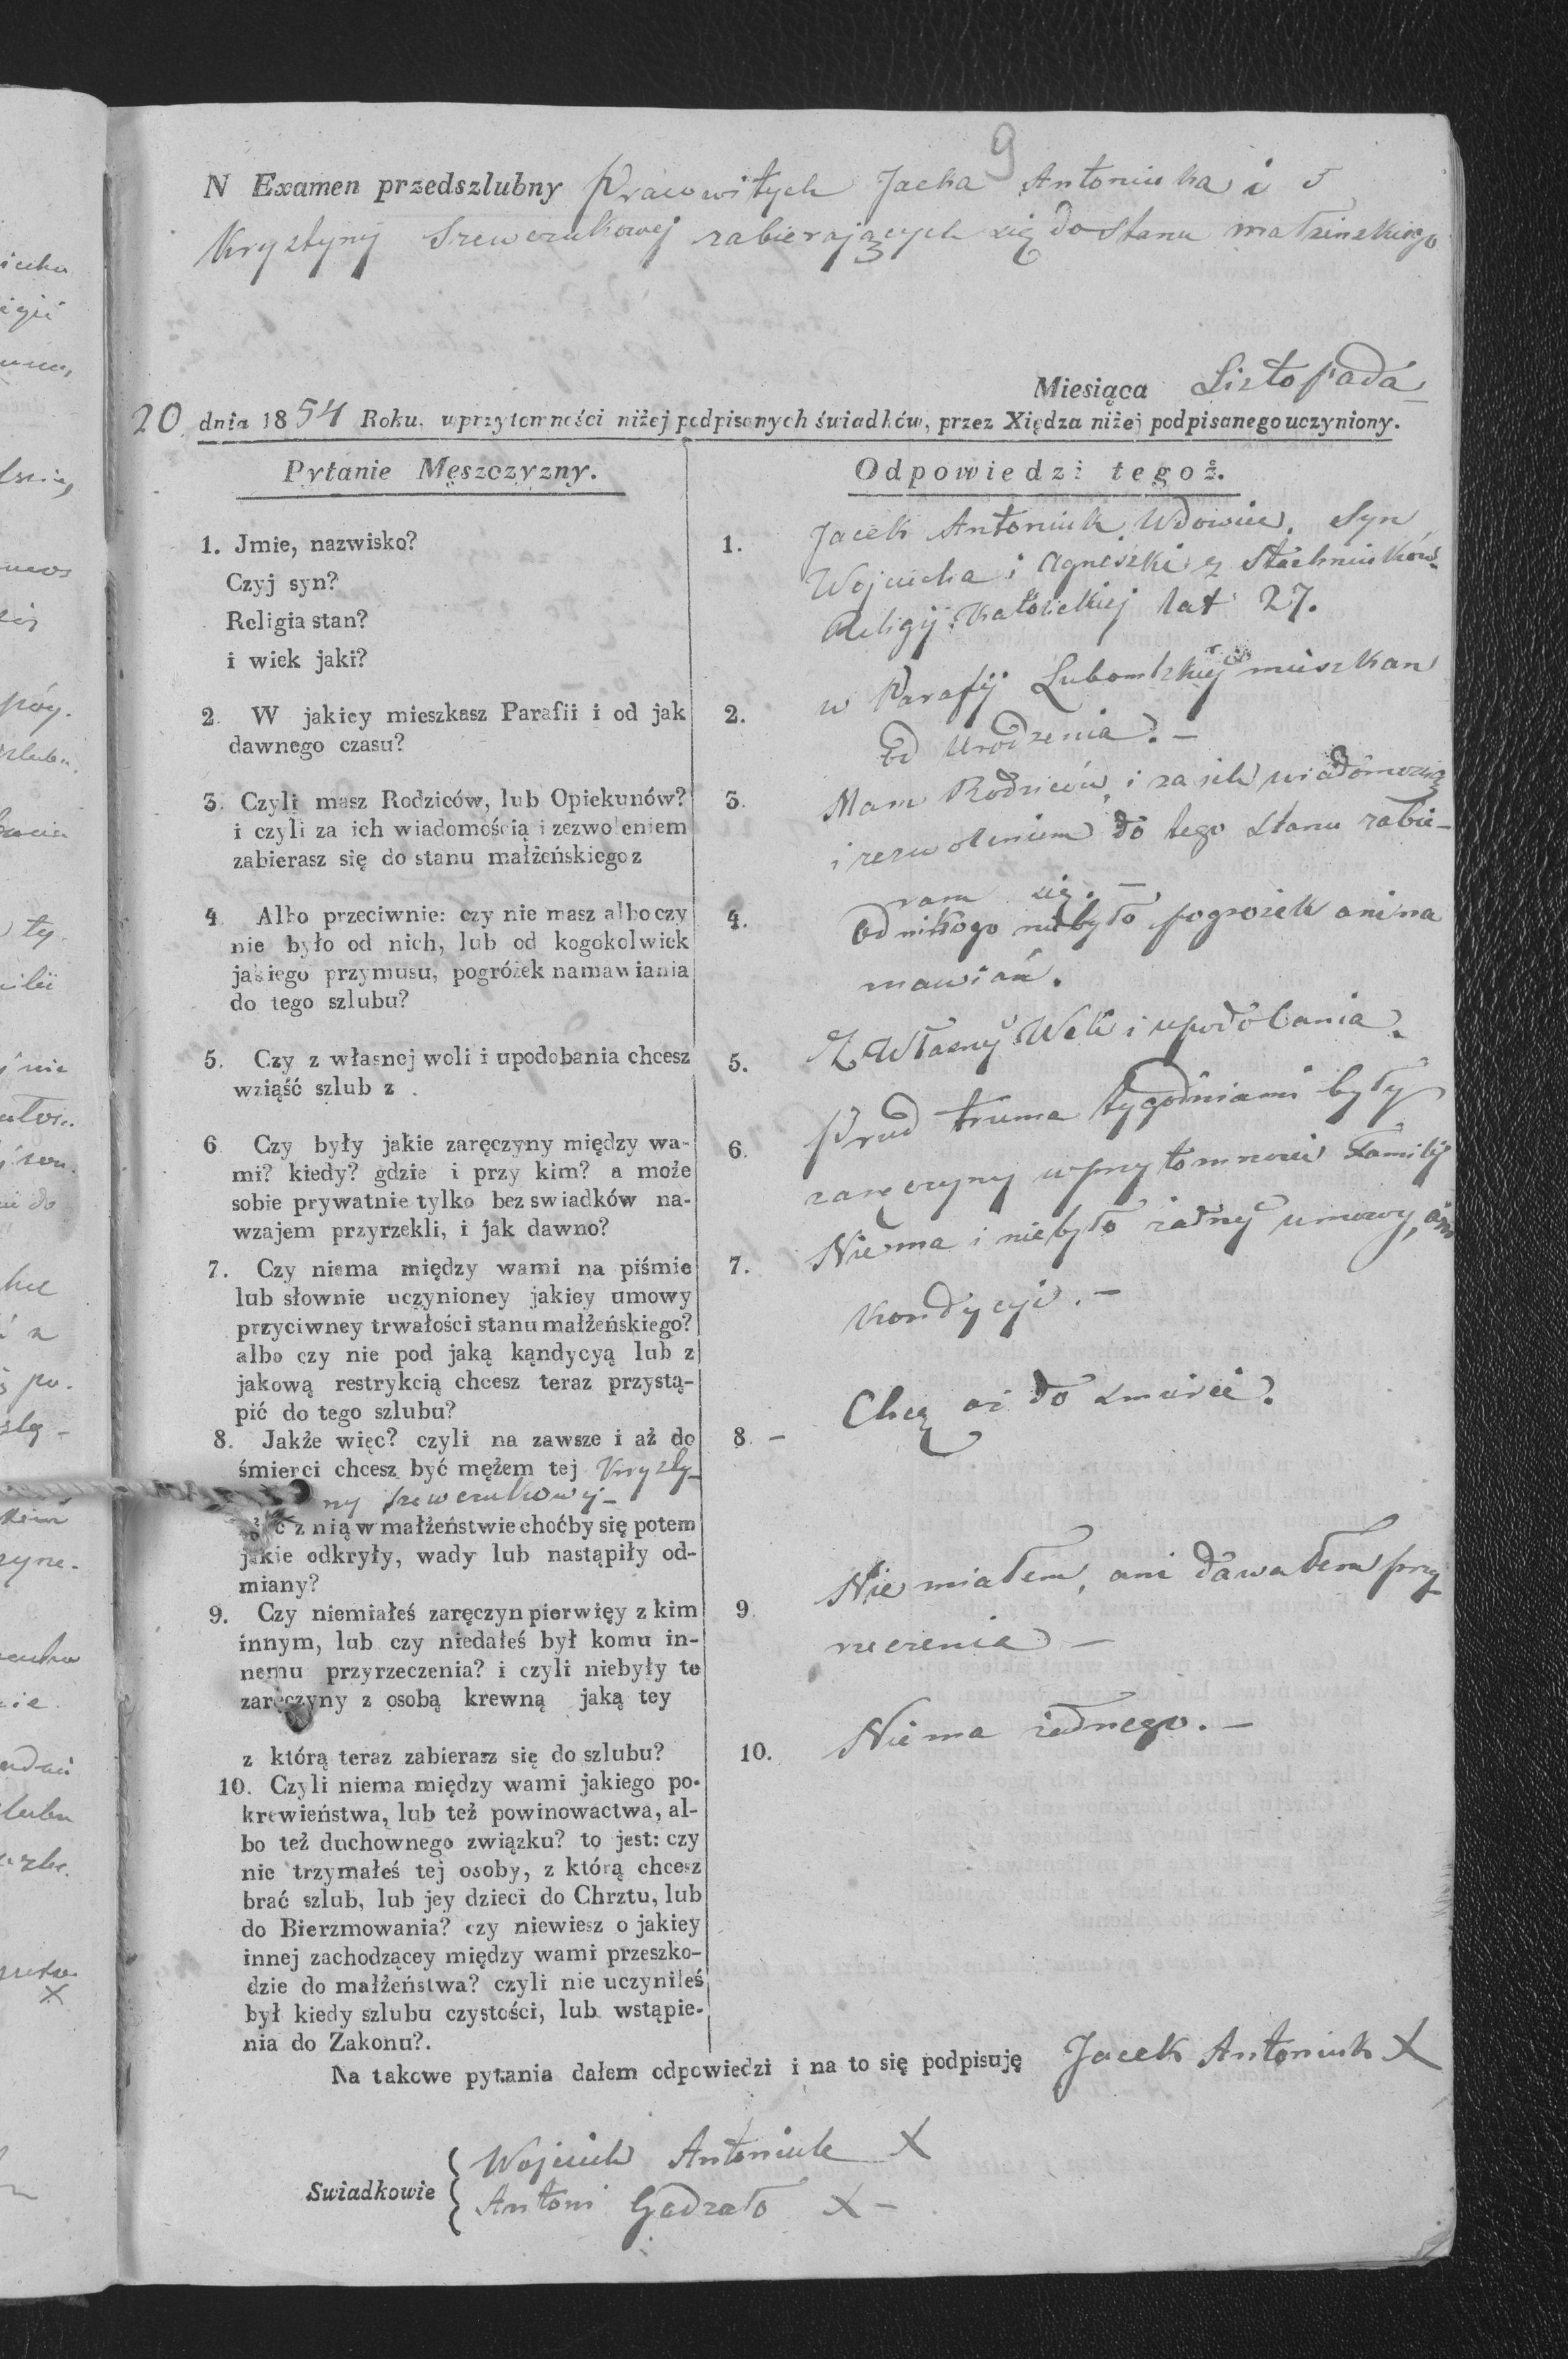 9
N Examen przedszlubny Pracowitych Jacka Antoniuka i
Krystyny Szewczukowej zabierających się do stanu małżeńskiego
Miesiąca Listopada
20 dnia 1854 Roku, w przytomności niżej podpisanych świadków, przez Xiędza niżej podpisanego uczyniony.
Pytanie Męszczyzny.
Odpowiedzi tegoż.
1. Jmie, nazwisko?
Czyj syn?
Religia stan?
i wiek jaki?
1. Jacek Antoniuk Wdowiec, Syn
Wojciecha i Agneszki z Stachniuków
Religij Katolickiej lat 27.
2. W jakiey mieszkasz Parafii i od jak
dawnego czasu?
2. w Parafij Lubomlskiej mieszkam
od Urodzenia. –
3. Czyli masz Rodziców, lub Opiekunów?
i czyli za ich wiadomością i zezwoleniem
zabierasz się do stanu małżeńskiego z
3. Mam Rodziców, i za ich wiadomością
i zezwoleniem do tego stanu zabie-
ram się. –
4. Albo przeciwnie: czy nie masz albo czy
nie było od nich, lub od kogokolwiek
jakiego przymusu, pogróżek namawiania
do tego szlubu?
4. Od nikogo niebyło pogrożek ani na
mawiań.
5. Czy z własnej woli i upodobania chcesz
wziąść szlub z .
5. Z Własnej Woli i upodobania.
6 Czy były jakie zaręczyny między wa-
mi? kiedy? gdzie i przy kim? a może
sobie prywatnie tylko bez swiadków na-
wzajem przyrzekli, i jak dawno?
6. Przed trzema tygodniami były
zaręczyny w przytomnosci Familij
7. Czy niema między wami na piśmie
lub słownie uczynioney jakiey umowy
przyciwney trwałości stanu małżeńskiego?
albo czy nie pod jaką kąndycyą lub z
jakową restrykcią chcesz teraz przystą-
pić do tego szlubu?
7. Niema i niebyło żadnej umowy, ani
Kondycyi. –
8. Jakże więc? czyli na zawsze i aż do
śmierci chcesz być mężem tej Krysty-
ny Szewczukowej –
z nią w małżeństwie choćby się potem
jakie odkryły, wady lub nastąpiły od-
miany?
8. – Chcę aż do smierci.
9. Czy niemiałeś zaręczyn pierwięy z kim
innym, lub czy niedałeś był komu in-
nemu przyrzeczenia? i czyli niebyły te
zaręczyny z osobą krewną jaką tey
z którą teraz zabierasz się do szlubu?
9. Nie miałem, ani dawałem przy-
rzeczenia –
10. Czyli niema między wami jakiego po-
krewieństwa, lub też powinowactwa, al-
bo też duchownego związku? to jest: czy
nie trzymałeś tej osoby, z którą chcesz
brać szlub, lub jey dzieci do Chrztu, lub
do Bierzmowania? czy niewiesz o jakiey
innej zachodzącey między wami przeszko-
dzie do małżeństwa? czyli nie uczyniłeś
był kiedy szlubu czystości, lub wstąpie-
nia do Zakonu?.
10. Niema żadnego. –
Na takowe pytania dałem odpowiedzi i na to się podpisuję Jacek Antoniuk X
Swiadkowie
Wojciech Antoniuk X
Antoni Gadzało X –